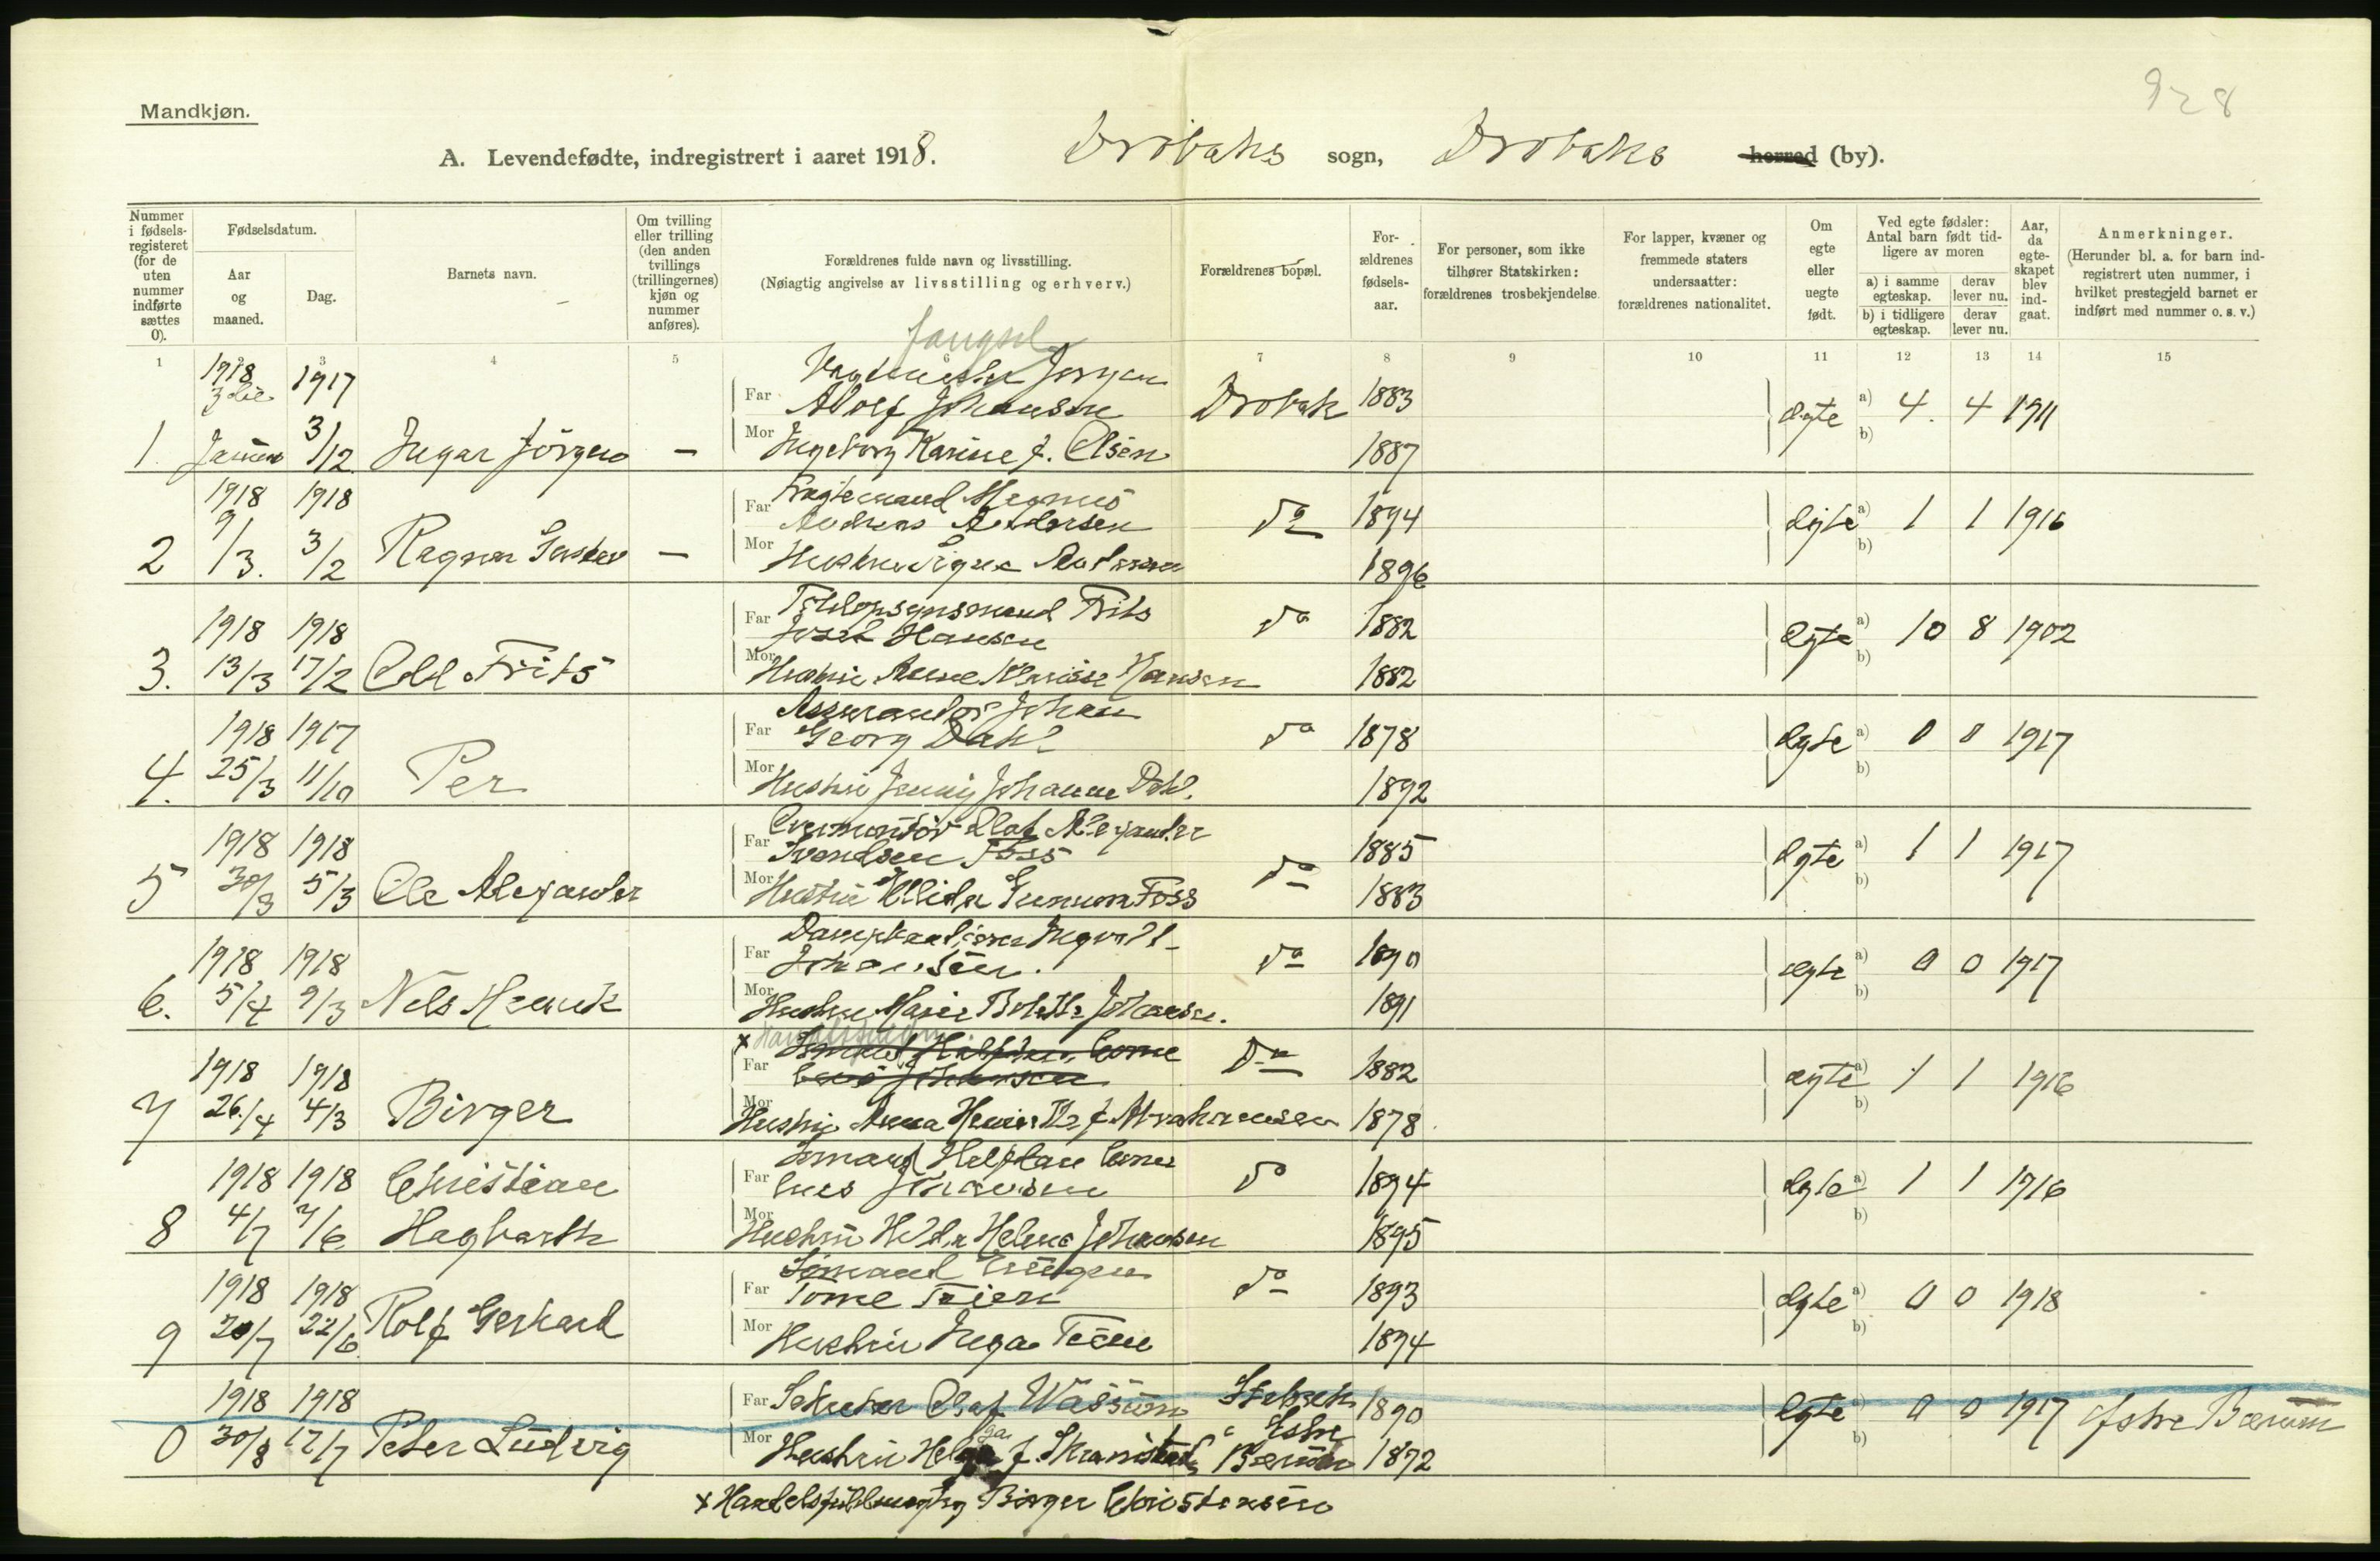 928
Mandkjøn.
A. Levendefødte, indregistrert i aaret 1918. Drøbaks sogn, Drøbaks herred (by).
Nummer i fødsels-registeret (for de uten nummer indførte sættes 0).
Fødselsdatum.
Aar og maaned.
Dag.
Barnets navn.
Om tvilling eller trilling (den anden tvillings (trillingernes) kjøn og nummer anføres).
Forældrenes fulde navn og livsstilling.
(Nøiagtig angivelse av livsstilling og erhverv.)
Forældrenes bopæl.
For-ældrenes fødsels-aar.
For personer, som ikke tilhører Statskirken: forældrenes trosbekjendelse.
For lapper, kvæner og fremmede staters undersaatter: forældrenes nationalitet.
Om egte eller uegte født.
Ved egte fødsler: Antal barn født tid-ligere av moren
a) i samme egteskap. derav lever nu.
b) i tidligere egteskap. derav lever nu.
Aar, da egte-skapet blev ind-gaat.
Anmerkninger.
(Herunder bl. a. for barn ind-registrert uten nummer, i hvilket prestegjeld barnet er indført med nummer o. s. v.)
1 2 3 4 5 6 7 8 9 10 11 12 13 14 15
1918 1917 Jørgen
Far Adolf Johansen Drøbak 1883 Egte a) 4. 4 1911
1. 3/12 Ingar Jørgen – Mor Ingeborg Karine f. Olsen 1887 b)
1918 1918 Fragtemand Magnus
Far Andreas Andersen do 1894 Egte a) 1 1 1916
2 9/3. 3/2 Ragnar Gustav – Mor Hustru Signe Andersen 1896 b)
1918 1918 Far Toldopsynsmand Frits
Josef Hansen do 1882 Egte a) 10 8 1902
3. 13/3 17/2 Odd Frits Mor Hustru Anne Marie Hansen 1882 b)
1918 1917 Assurandør Johan
Far Georg Dahl do 1878 Egte a) 0 0 1917
4. 25/3 11/10 Per Mor Hustru Jenny Johanne Dahl. 1892 b)
1918 1918 Olaf Alexander
Far Svendsen Foss do 1885 Egte a) 1 1 1917
5 30/3 5/3 Ole Alexander Mor Hustru Elida Gunnora Foss 1883 b)
1918 1918 Ingvald
Far Johansen. do 1890 Egte a) 0 0 1917
6. 5/4 9/3 Nils Henrik Mor Hustru Marie Bolette Johansen. 1891 b)
1918 1918 × Far Johansen do 1882 egte a) 1 1 1916
7 26/4 4/3 Birger Mor Hustru Anna Henriette f. Abrahamsen 1878 b)
1918 1918 Christian Sømand
Far Johansen do 1894 Egte a) 1 1 1916
8 4/7 7/6 Hagbarth Mor Hustru Hilda Helene Johansen 1895 b)
1918 1918 Sømand
Far do 1893 Egte a) 0 0 1918
9 20/7 22/6 Rolf Gerhard Mor Hustru Inga 1894 b)
1918 1918 Far Olaf 1890 Egte a) 0 0 1917 Østre Bærum
0 30/8 12/7 Peter Ludvig Mor Hustru Helga f. Østre Bærum 1872 b)
× Handelsfuldmægtig Birger Christensen